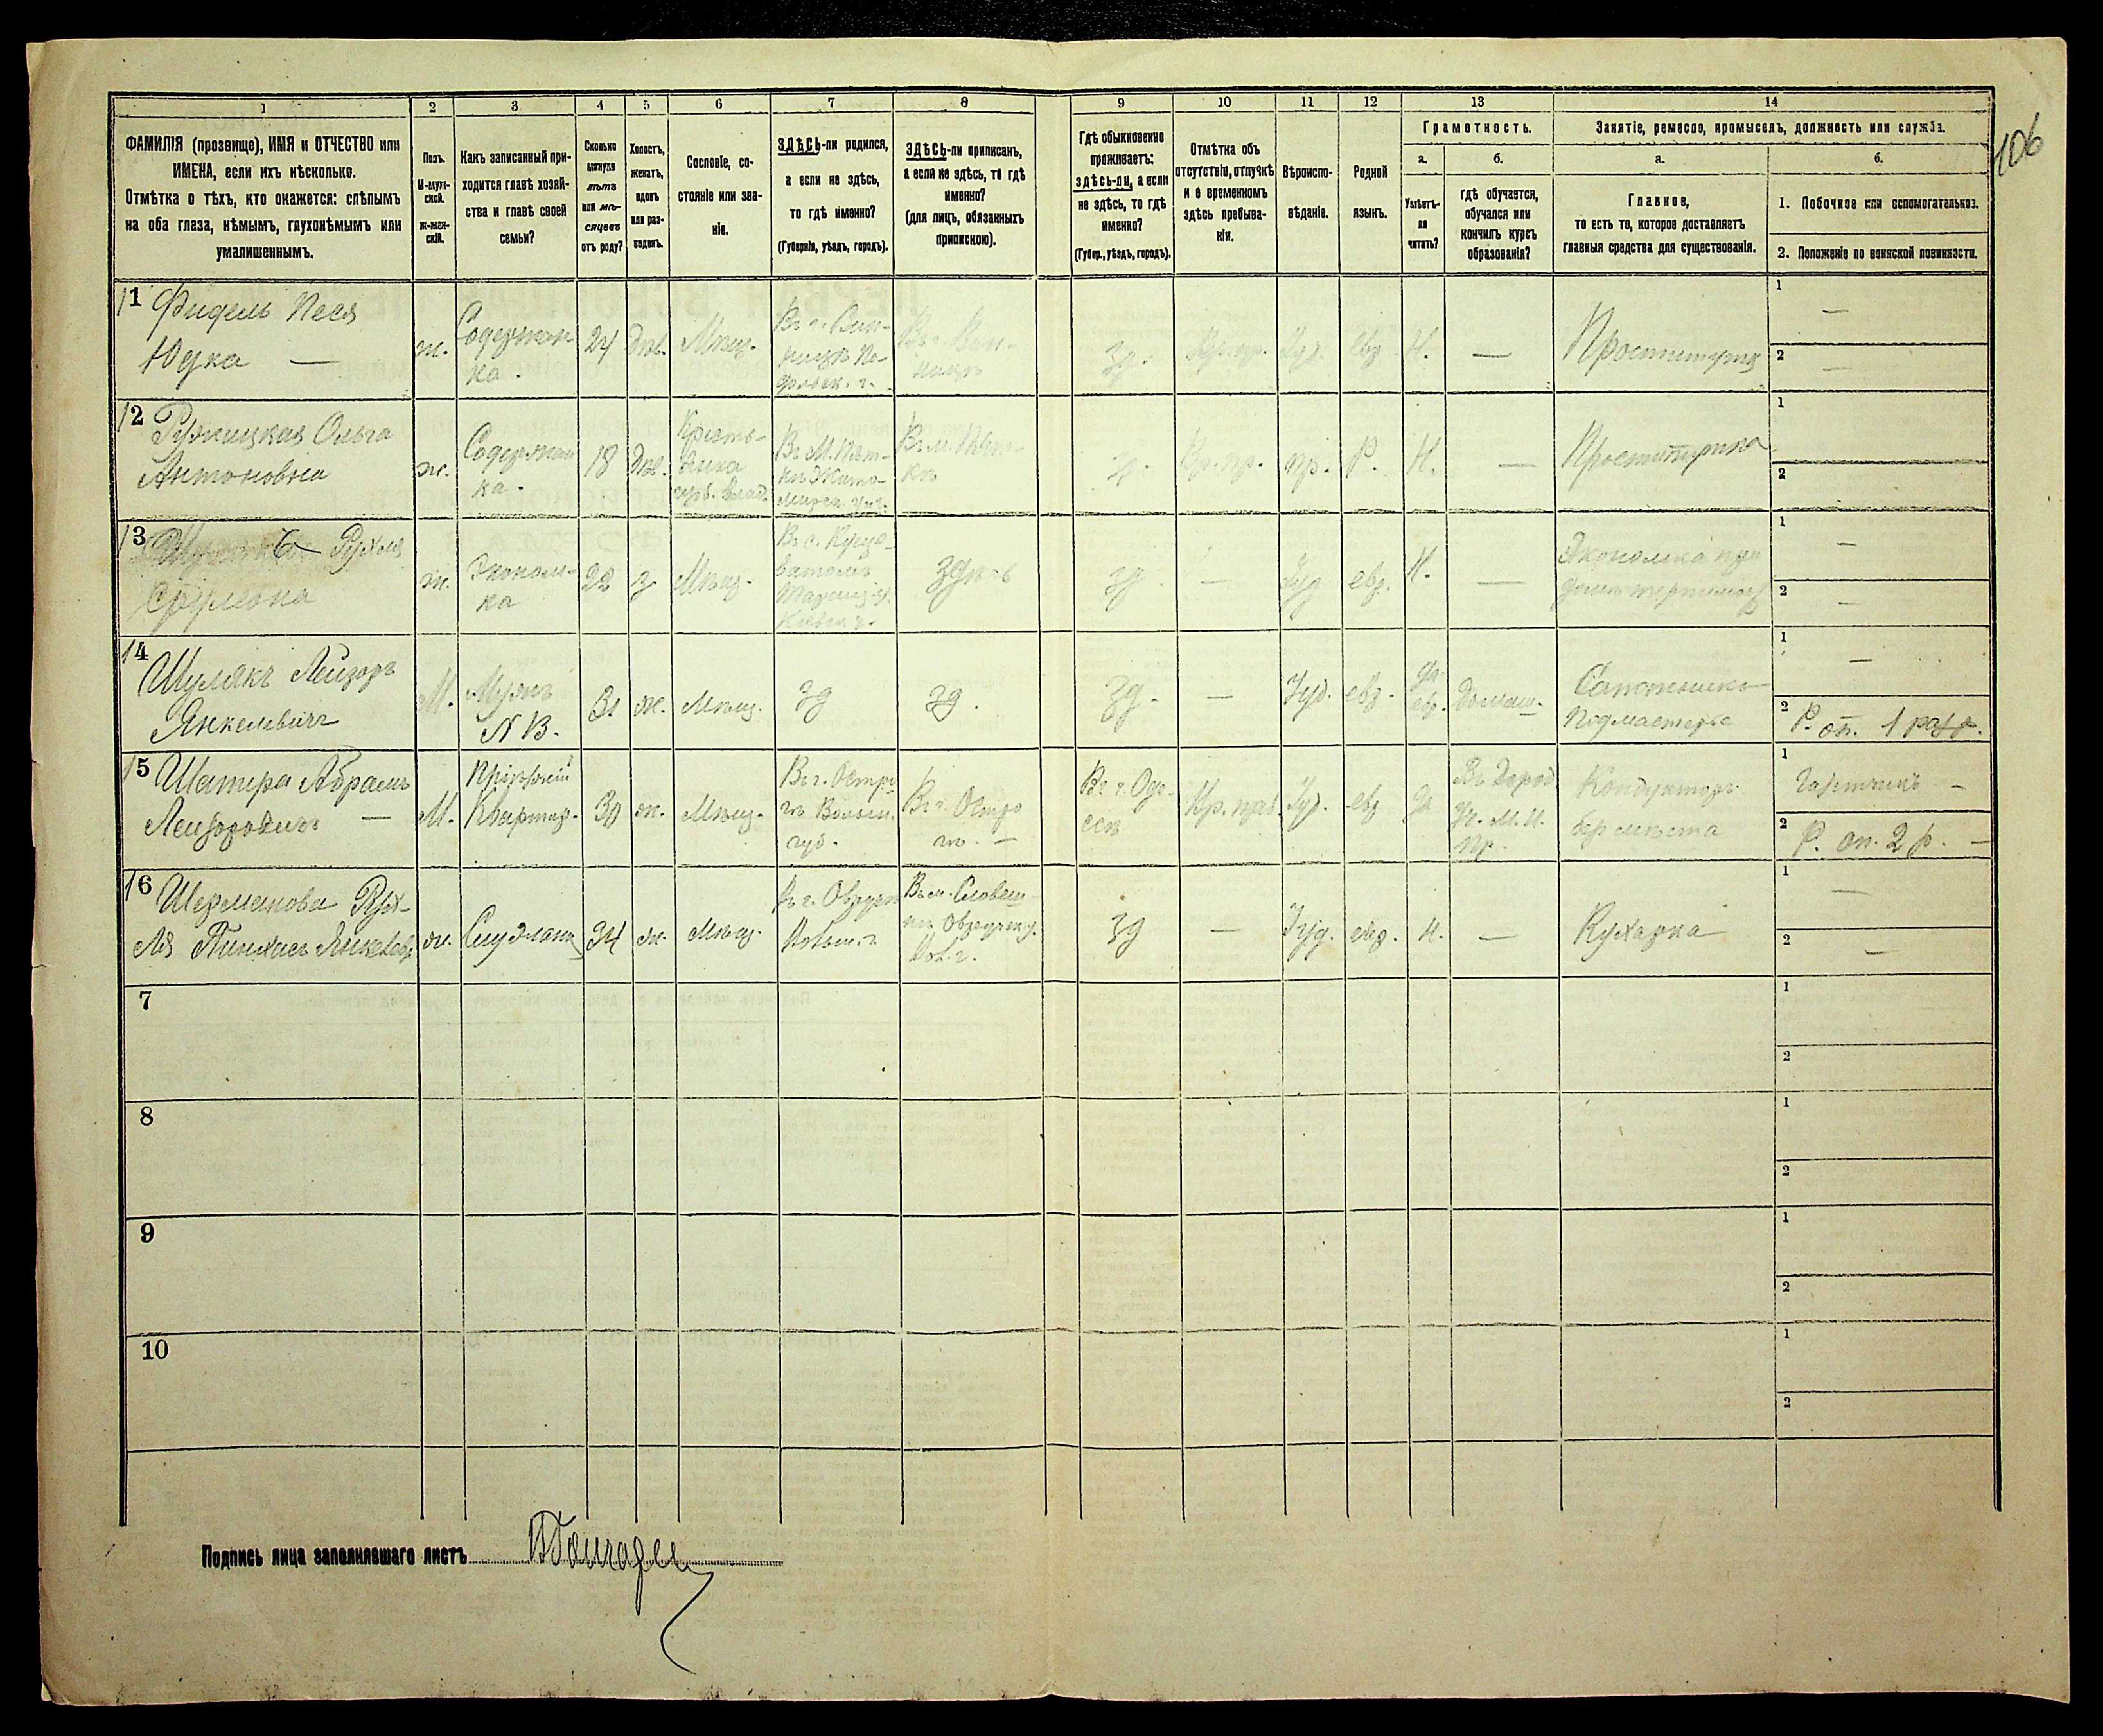 106
1 2 3 4 5 6 7 8 9 10 11 12 13 14
ФАМИЛІЯ (прозвище), ИМЯ и ОТЧЕСТВО или
ИМЕНА, если ихъ нѣсколько.
Отмѣтка о тѣхъ, кто окажется: слѣпымъ
на оба глаза, нѣмымъ, глухонѣмымъ или
умалишеннымъ.
Полъ.
М-муж-
ской.
Ж-жен-
скій.
Какъ записанный при-
ходится главѣ хозяй-
ства и главѣ своей
семьи?
Сколько
минуло
лѣтъ
или мѣ-
сяцевъ
отъ роду?
Холостъ,
женатъ,
вдовъ
или раз-
веденъ.
Сословіе, со-
стояніе или зва-
ніе.
ЗДѢСЬ-ли родился,
а если не здѣсь,
то гдѣ именно?
(Губернія, уѣздъ, городъ).
ЗДѢСЬ-ли приписанъ,
а если не здѣсь, то гдѣ
именно?
(для лицъ, обязанныхъ
припискою).
Гдѣ обыкновенно
проживаетъ:
здѣсь-ли, а если
не здѣсь, то гдѣ
именно?
(Губер., уѣздъ, городъ).
Отмѣтка объ
отсутствіи, отлучкѣ
и о временномъ
здѣсь пребыва-
ніи.
Вѣроиспо-
вѣданіе.
Родной
языкъ.
Грамотность.
а.
Умѣетъ-
ли
читать?
б.
Гдѣ обучается,
обучался или
кончилъ курсъ
образованія?
Занятіе, ремесло, промыселъ, должность или служба.
а.
Главное,
то есть то, которое доставляетъ
главныя средства для существованія.
б.
1. Побочное или вспомогательное.
2. Положеніе по воинской повинности.
11 Фидель Песя
Юдка —
ж.
Содержан-
ка.
24
Дѣв.
Мѣщ.
Въ г. Вин-
ницѣ По-
дольск. г.
Въ г. Вин-
ницѣ
Зд.
Вр. пр.
Іуд.
евр.
Н.
—
Проститутка
1 —
2 —
12 Ружицкая Ольга
Антоновна
ж.
Содержан
ка.
18
Дѣв.
Кресть-
янка
Въ М. Пят-
кѣ Жито-
Въ м. Пят-
кѣ
Вр. пр.
пр.
Р.
Н.
—
Проститутка
1
2
13 Рухля
Сrулевна
ж.
Эконом-
ка
22
Мѣщ.
Въ с.
Таращ. у.
Кіевск. г.
зд
—
Іуд
евр.
Н.
—
Экономка при
домѣ терпимост
1 —
2 —
14 Шулякъ Лейзоръ
Янкелевичъ
М.
Мужъ
N 13.
31
ж.
Мѣщ.
зд
зд.
зд.
—
Іуд.
евр.
да
евр.
Домаш.
Сапожникъ
Подмастерье
1 —
2 Р. оп. 1 разр.
15 Шапира Абрамъ
Лейзоровичъ —
М.
Пріѣзжій
Квартир.
30
ж.
Мѣщ.
Въ г. Остро
гѣ Волын.
губ.
Въ г. Остро
гѣ. —
Въ г. Оде-
ссѣ
Вр. преб.
Іуд.
евр
да
Въ Город.
Уч. М. Н.
Пр.
Кондукторъ
без мѣста
1 Газетчикъ —
2 Р. оп. 2 р. —
16 Шермanова Рух-
ля
ж.
Служанка
34
ж.
Мѣщ.
Въ г. Овруч
Волын. г.
Въ м. Словеш
нѣ Овручск. у.
Вол. г.
зд
—
Іуд.
евр.
н.
—
Кухарка
1 —
2 —
7 1
2
8 1
2
9 1
2
10 1
2
Подпись лица заполнявшаго листъ